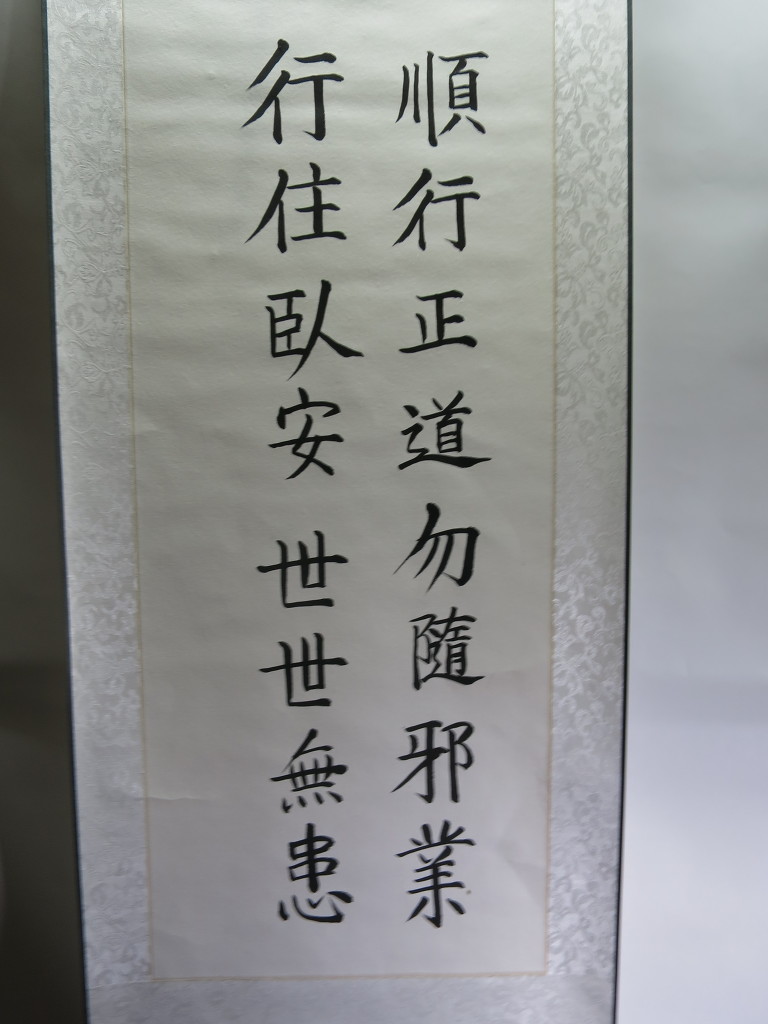 順行正道勿隨邪業
行住臥安世世無患